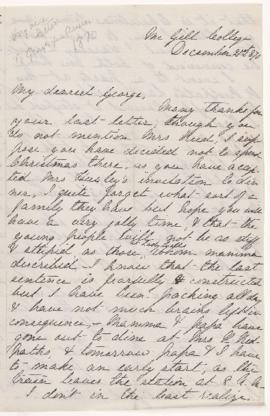 McGill College
December 21st 1870
My dearest George,
Many thanks for
your last letter, though you
do not mention Mrs I sup
pose you have decided not to spend
Christmas there, as you have accep
ted Mrs invitation to din
ner, I quite forget what sort of a
family they have but hope you will
have a very jolly time, & that the
young people will not be as stiff
& stupid as those whom mamma
described. I know that the last
sentence is fearfully constructed
but I have been packing all day
& have not much brains left in
consequence,- Mamma & papa have
gone out to dine at Mrs Red
paths, & tomorrow papa & I have
to make an early start, as the
train leaves the station at 8 A.M.
I don't in the least realize